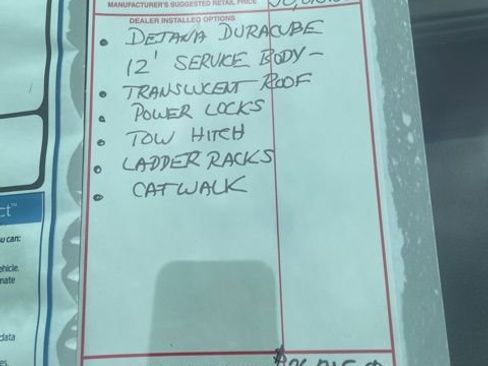 MANUFACTURER'S SUGGESTED RETAIL PRICE
DEALER INSTALLED OPTIONS
• DETANA DURACUBE
12' SERVICE BODY -
• TRANSLUCENT ROOF
• POWER LOCKS
• TOW HITCH
• LADDER RACKS
• CATWALK
ct™
u can:
ehicle.
mate
data
es.